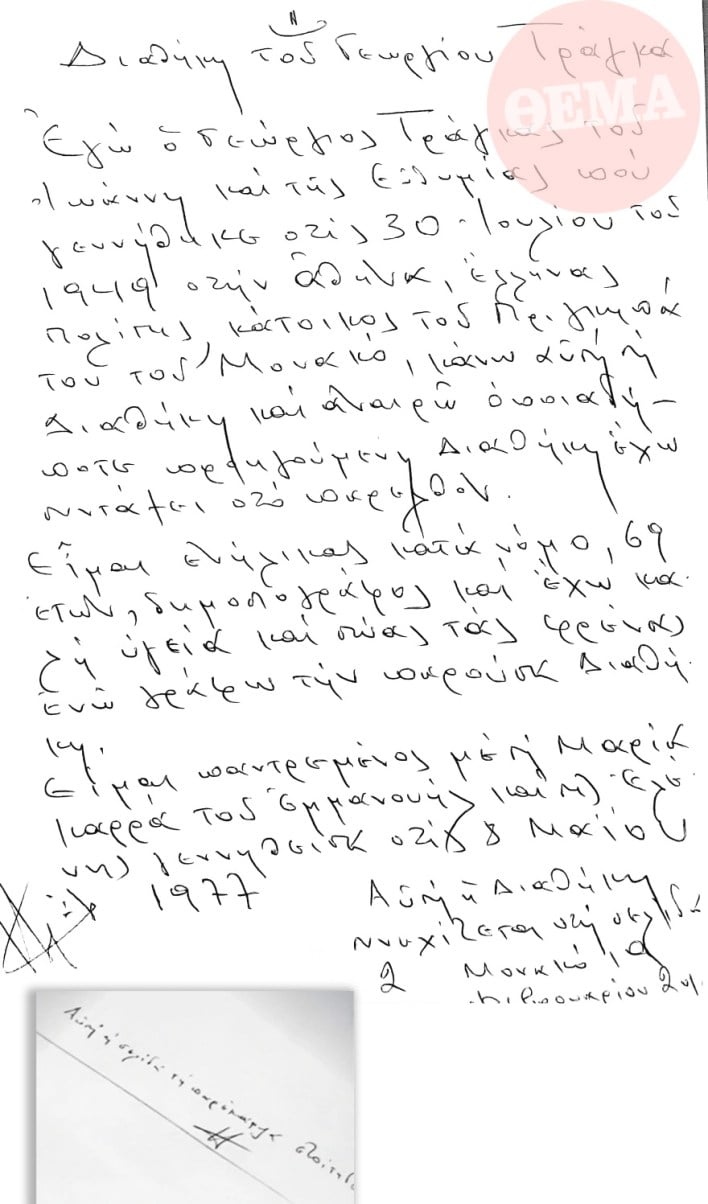 Η
Διαθήκη τοῦ Γεωργίου Τράγκα
ΘΕΜΑ
Ἐγώ ὁ Γεώργιος Τράγκας τοῦ
Ἰωάννη καί τῆς Εὐθυμίας πού
γεννήθηκε στίς 30 Ἰουλίου τοῦ
1949 στήν Ἀθήνα, Ἕλληνας
πολίτης, κάτοικος τοῦ Πριγκιπά
του τοῦ Μονακό, κάνω αὐτή ἡ
Διαθήκη καί ἀναιρῶ ὁποιαδή-
ποτε προηγούμενη Διαθήκη ἔχω
συντάξει στό παρελθόν.
Εἶμαι ἐνήλικας κατά νόμο, 69
ἐτῶν, δημοσιογράφος καί ἔχω κα
λή ὑγεία καί σώας τάς φρένας
ἐνῶ γράφω τήν παροῦσα Διαθή
κη.
Εἶμαι παντρεμένος μέ τή Μαρία
Καρρά τοῦ Ἐμμανουήλ καί τῆς Ἑλέ
νης γεννηθεῖσα στίς 8 Μαΐου
1977
Αὐτή ἡ Διαθήκη
συνεχίζεται στή σελίδα
2 Μονακό,
Φεβρουαρίου
Αὐτή ἡ σελίδα